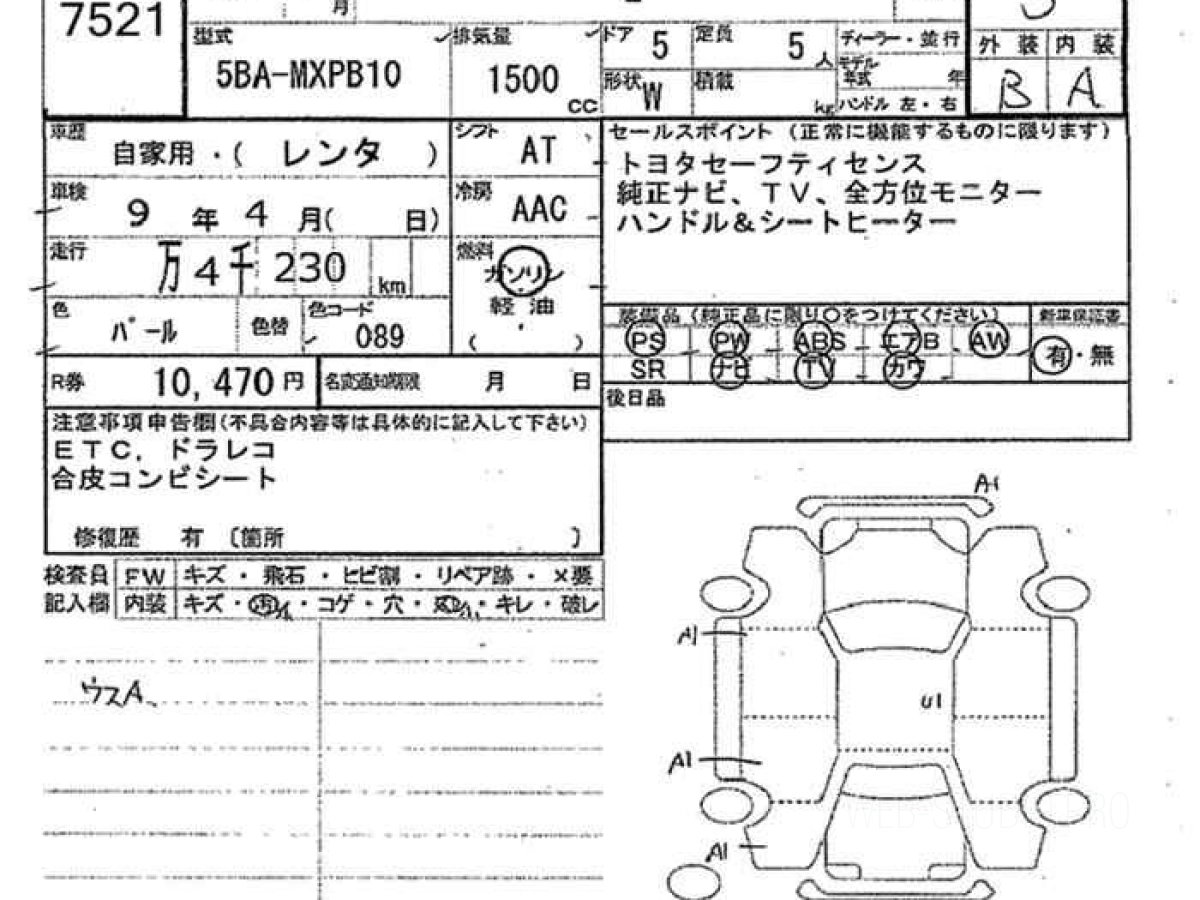 7521
月
型式
5BA-MXPB10
排気量
1500
cc
ドア 5
定員 5 人
形状 W
積載 kg
ディーラー・並行
モデル年式 年
ハンドル 左・右
外装 内装
B A
車歴
自家用・( レンタ )
シフト
AT
車検
9 年 4 月( 日)
冷房
AAC
走行
万 4 千 230 km
燃料
ガソリン
軽油
( )
色
パール
色替
色コード
089
セールスポイント (正常に機能するものに限ります)
トヨタセーフティセンス
純正ナビ、TV、全方位モニター
ハンドル&シートヒーター
装備品 (純正品に限り○をつけてください)
新車保証書
PS PW ABS エアB AW
SR ナビ TV カワ
有・無
後日品
R券 10,470 円
名変通知期限 月 日
注意事項申告欄(不具合内容等は具体的に記入して下さい)
ETC, ドラレコ
合皮コンビシート
修復歴 有 〔箇所 〕
検査員
記入欄
FW キズ・飛石・ヒビ割・リペア跡・×要
内装 キズ・汚・コゲ・穴・・キレ・破レ
ウスA
A1
A1
U1
A1
A1